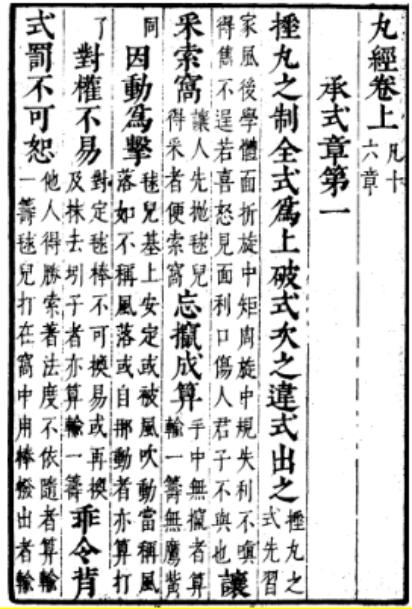 丸經卷上 凡十六章
承式章第一
捶丸之制全式爲上破式次之違式出之 捶丸之式先習
家風後學體面折旋中矩周旋中規失利不嗔得雋不逞若喜怒見面利口傷人君子不與也 讓
采索窩 讓人先拋毬兒得采者便索窩 忘攛成算 手中無攛者算輸一籌無鷹觜
同 因動爲擊 毬兒基上安定或被風吹動當稱風落如不稱風落或自挪動者亦算打
了 對權不易 對定毬棒不可換易或再換及抹去子者亦算輸一籌 乖令背
式罰不可恕 他人得勝索著法度不依隨者算輸一籌毬兒打在窩中用棒撥出者輸